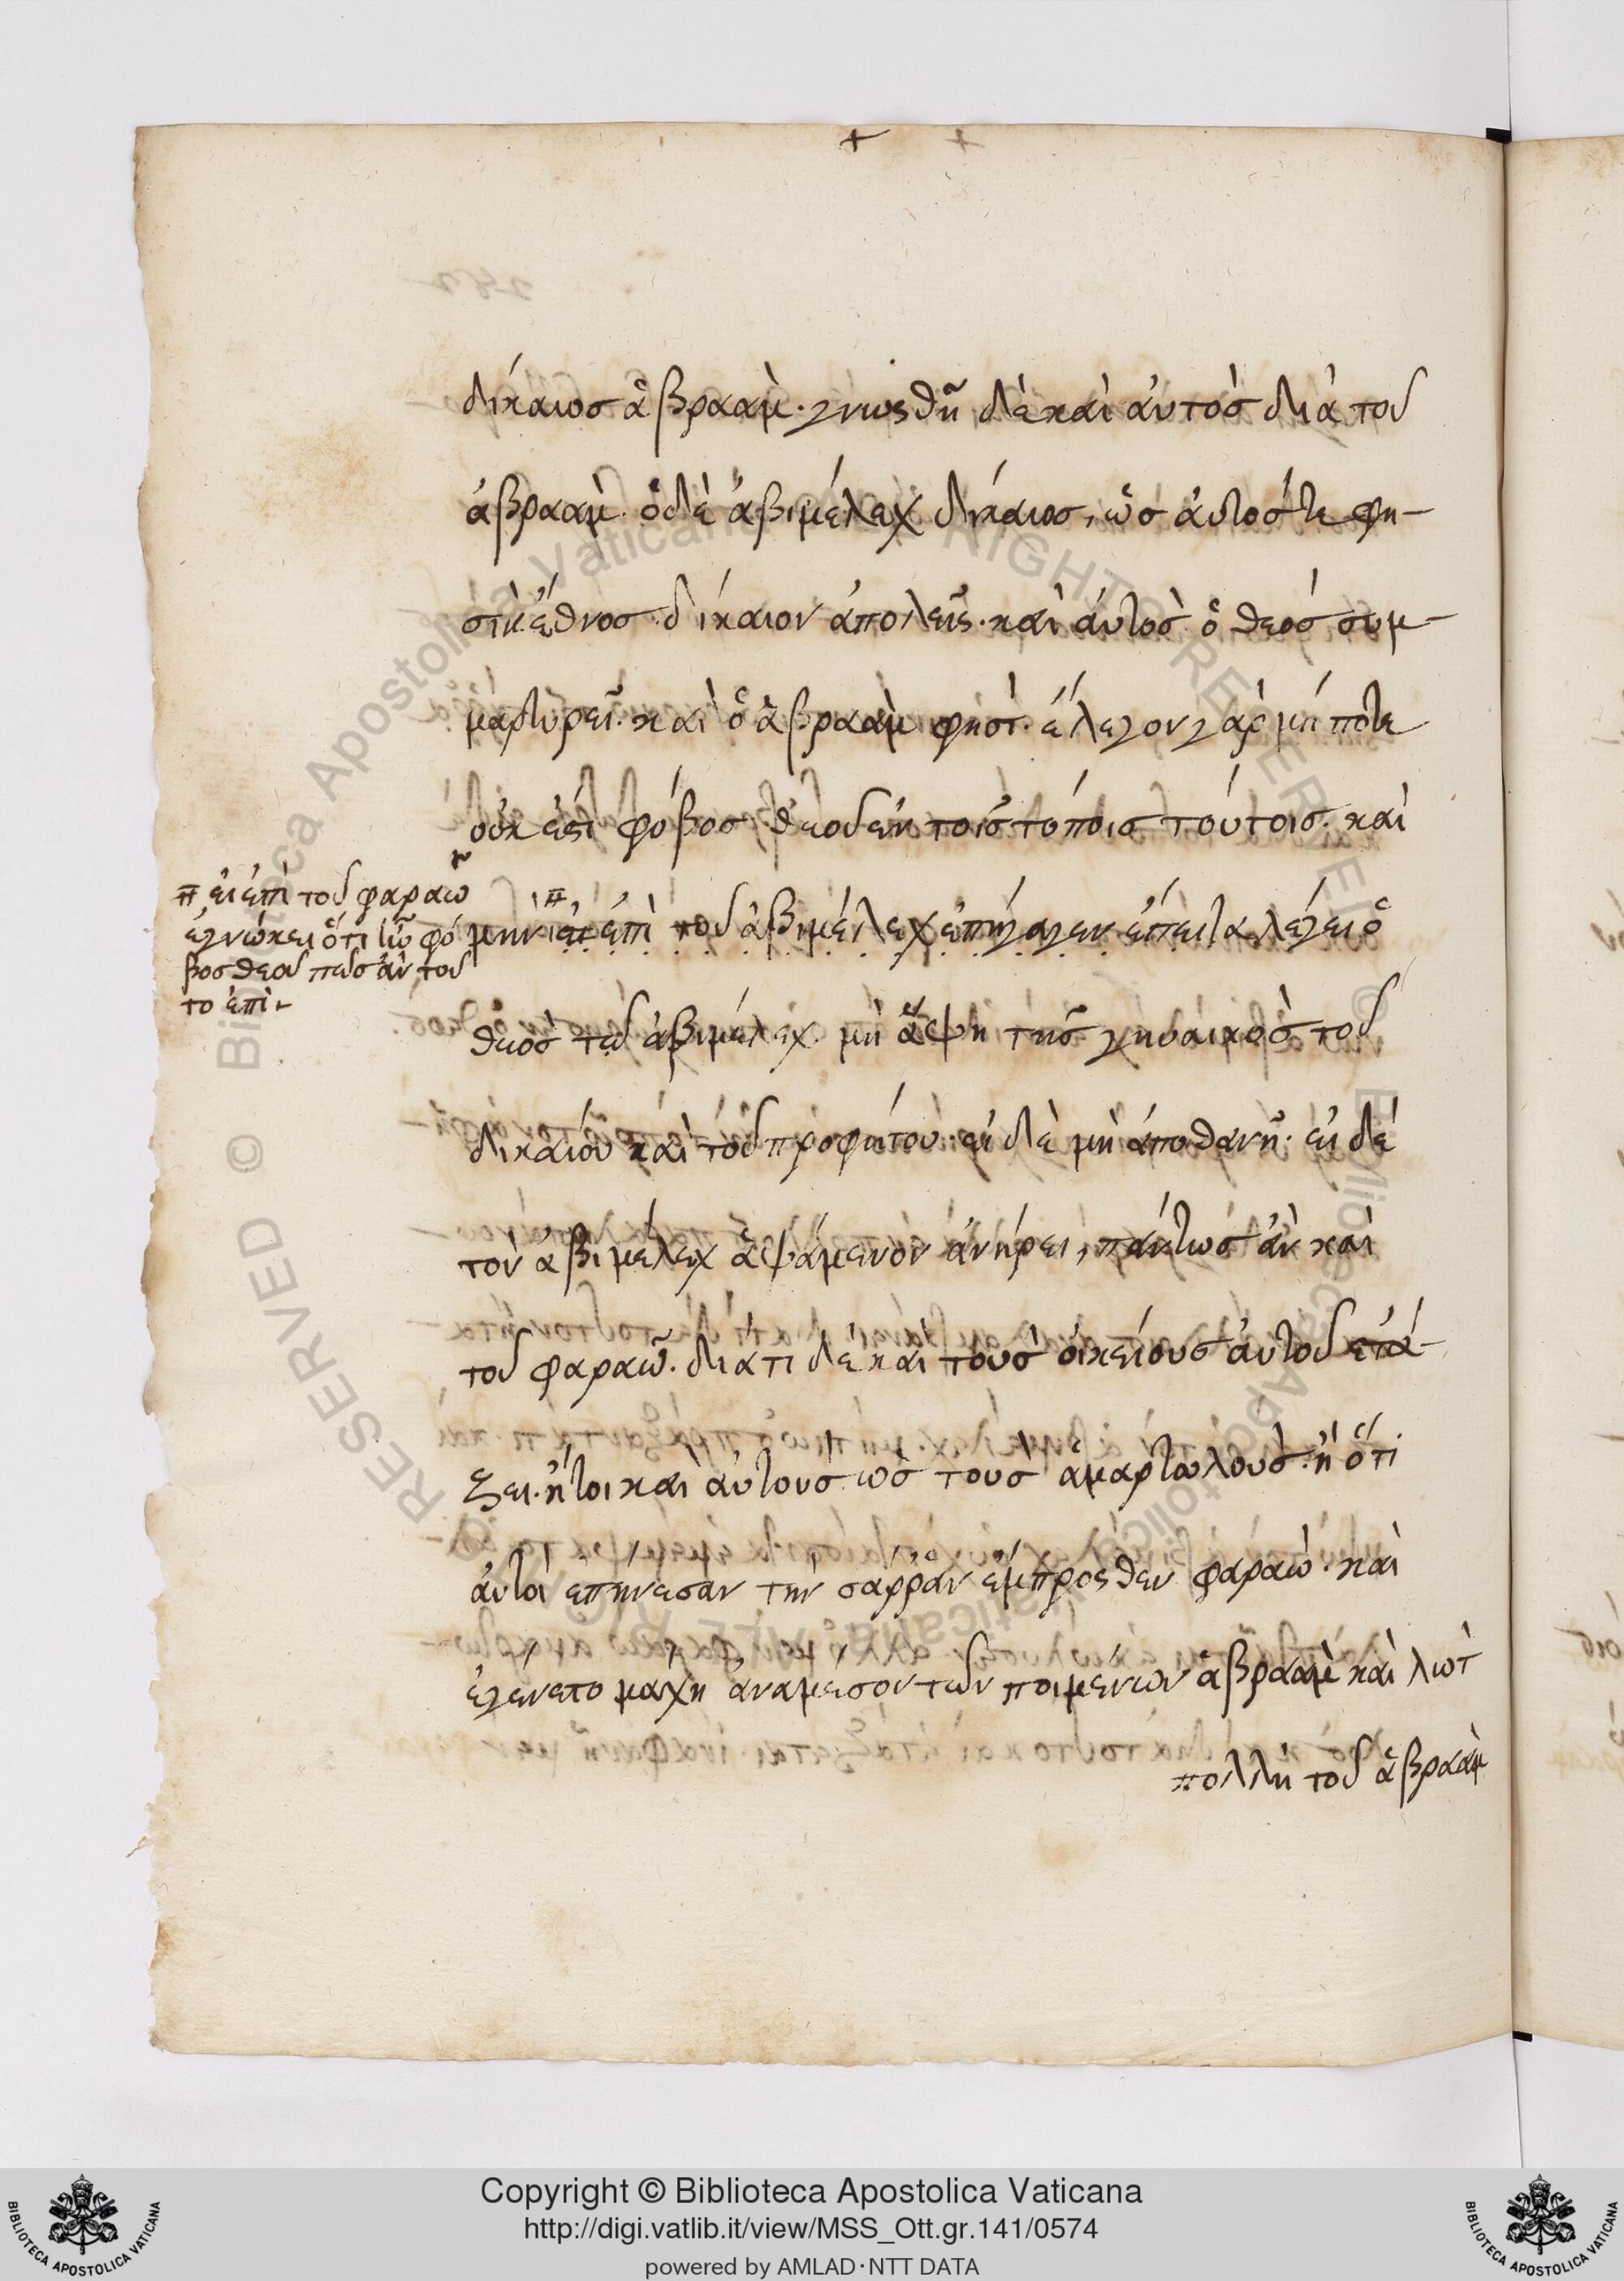 δίκαιος ἀβραάμ· γνωσθῆ δὲ καὶ αὐτὸς διὰ τοῦ
ἀβραάμ. ὁ δὲ ἀβιμέλεχ δίκαιος, ὡς αὐτός τε φη-
σίν. ἔθνος δίκαιον ἀπολεῖς. καὶ αὐτὸς ὁ θεός συμ-
μαρτυρεῖ. καὶ ὁ ἀβραὰμ φησὶ. ἔλεγον γὰρ μή ποτε
οὐκ ἔστι φόβος θεοῦ ἐν τοῖς τόποις τούτοις. καὶ
μὴν εἰ ἐπὶ τοῦ ἀβιμέλεχ ἐπήγαγεν ἔπειτα λέγει ὁ
θεὸς τῷ ἀβιμέλεχ μὴ ἅψῃ τῆς γυναικὸς τοῦ
δικαίου καὶ τοῦ προφήτου· εἰ δὲ μὴ ἀποθανῇ· εἰ δὲ
τὸν ἀβιμέλεχ ἁψάμενον ἀνῄρει, πάντως ἂν καὶ
τοῦ φαραῶ. διατί δὲ καὶ τοὺς οἰκείους αὐτοῦ ἐτά-
ξει· ἤτοι καὶ αὐτοὺς ὡς τοὺς ἁμαρτωλούς. ἢ ὅτι
αὐτοὶ ἐπῄνεσαν τὴν σάρραν ἔμπροσθεν φαραώ. καὶ
ἐγένετο μάχη ἀναμέσον τῶν ποιμένων ἀβραὰμ καὶ λώτ
πολλὴ τοῦ ἀβραάμ
εἰ ἐπὶ τοῦ φαραῶ
ἐγνώκει ὅτι ἦν φό
βος θεοῦ πῶς ἂν τοῦ
το ἐπὶ
Copyright © Biblioteca Apostolica Vaticana
http://digi.vatlib.it/view/MSS_Ott.gr.141/0574
powered by AMLAD·NTT DATA
BIBLIOTECA APOSTOLICA VATICANA
BIBLIOTECA APOSTOLICA VATICANA